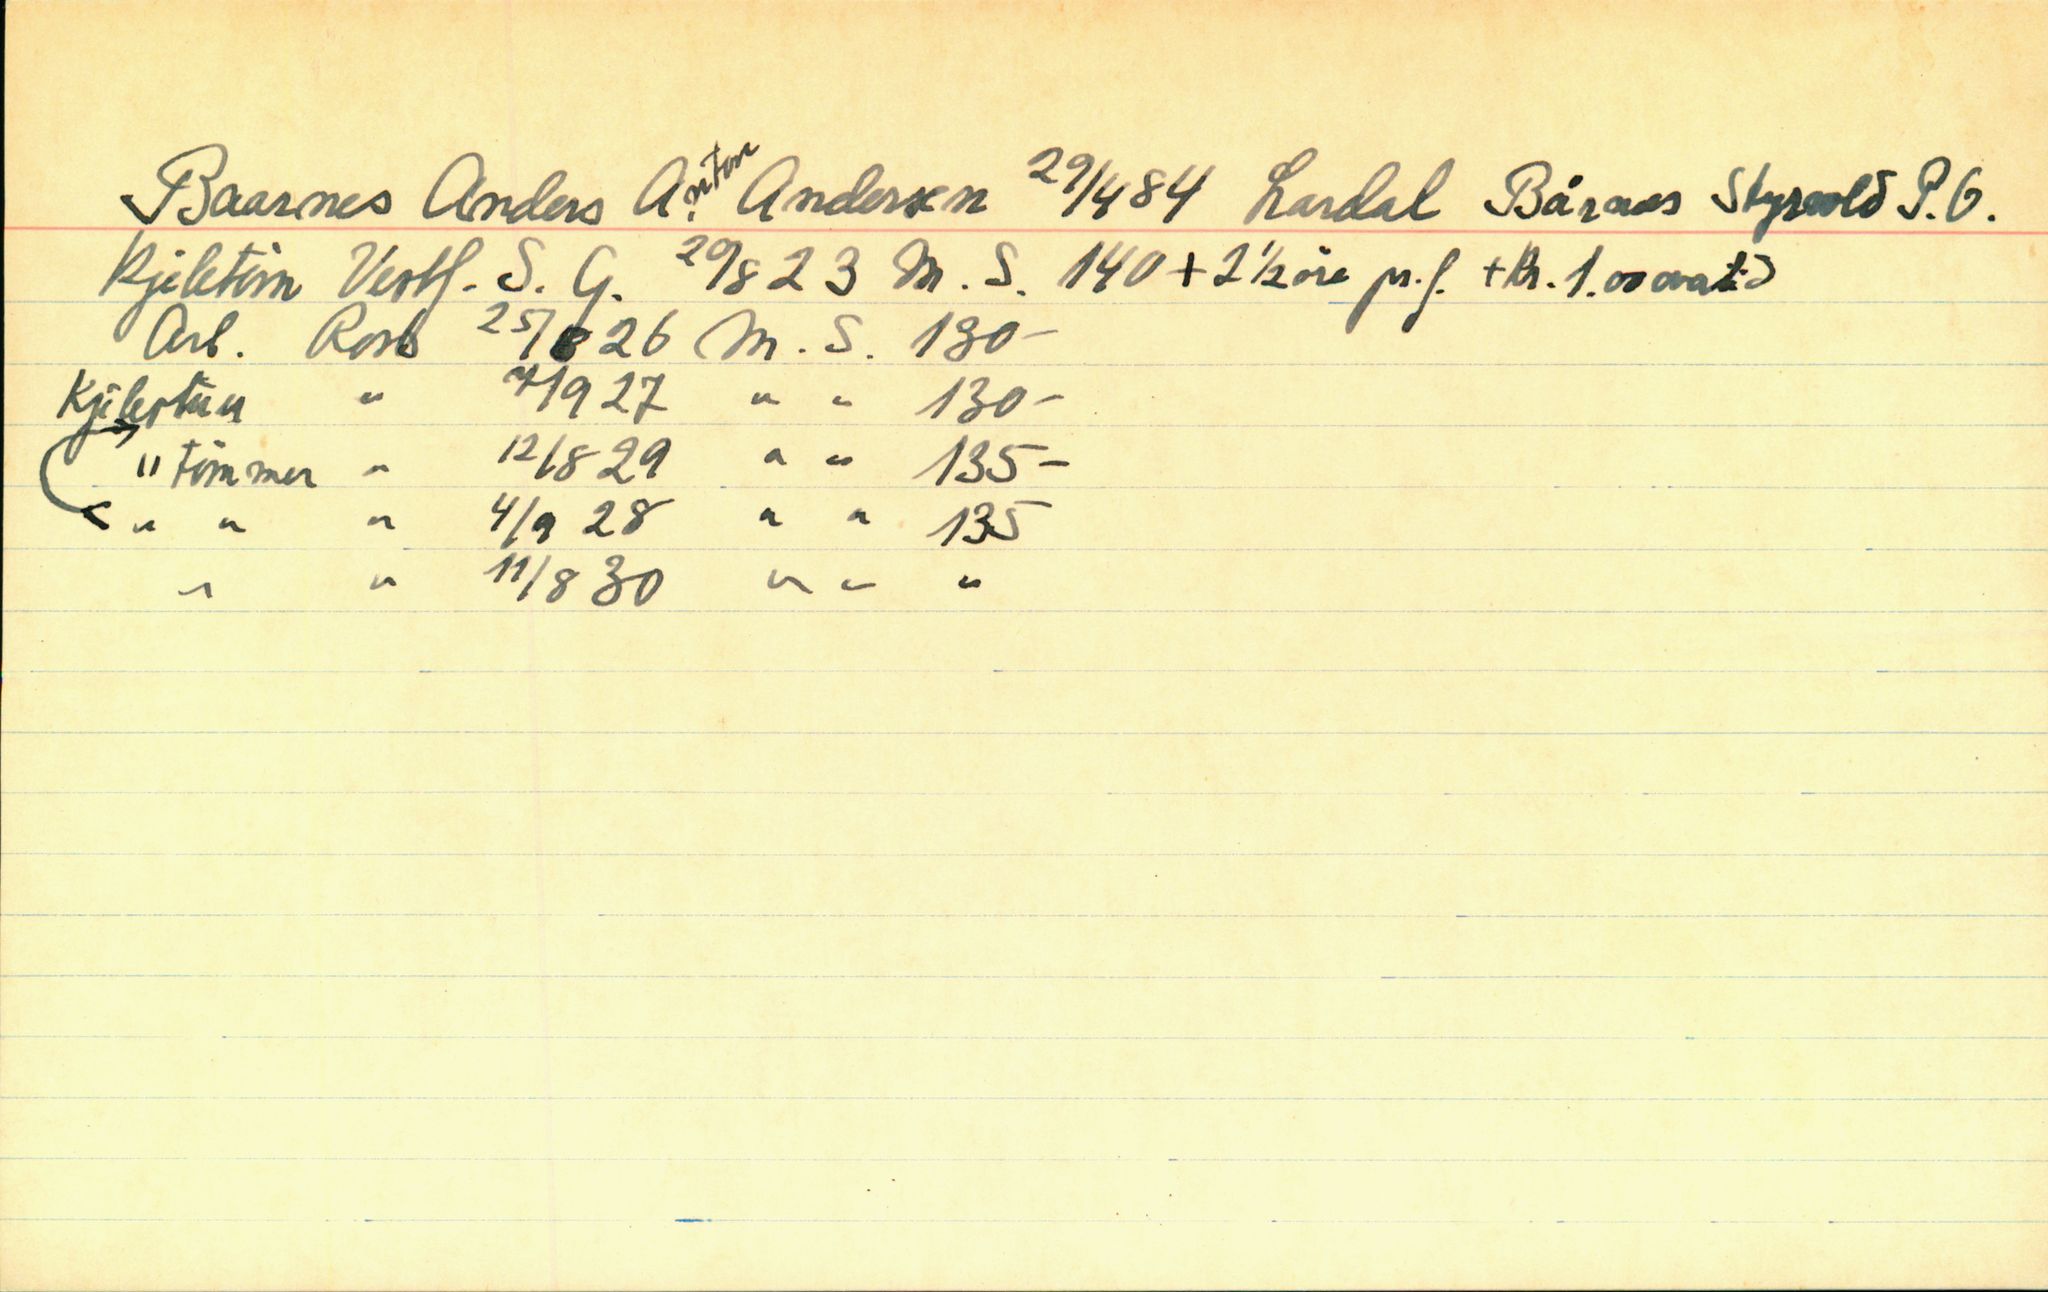 Baarnes Anders Anton Andersen 29/4 84 Lardal Bårnes Styrvold P.O.
Kjeletöm Vestf. S. G. 29/8 23 M. S. 140 + 2 1/2 öre pr. f. + Kr. 1.00 ovatid
Arb. Rosb 25/8 26 M. S. 130-
Kjelertöm " 7/9 27 " " 130-
" tömmer " 12/8 29 " " 135-
" " " 4/9 28 " " 135
" " 11/8 30 " " "